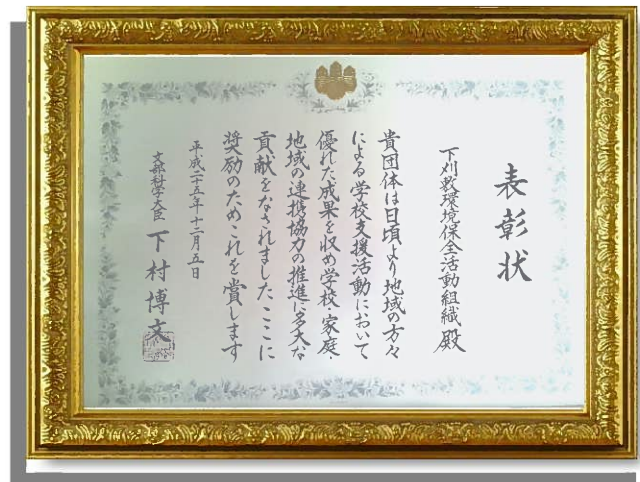 表彰状
下刈敷環境保全活動組織 殿
貴団体は日頃より地域の方々
による学校支援活動において
優れた成果を収め学校・家庭・
地域の連携協力の推進に多大な
貢献をなされましたここに
奨励のためこれを賞します
平成二十五年十二月五日
文部科学大臣 下村博文